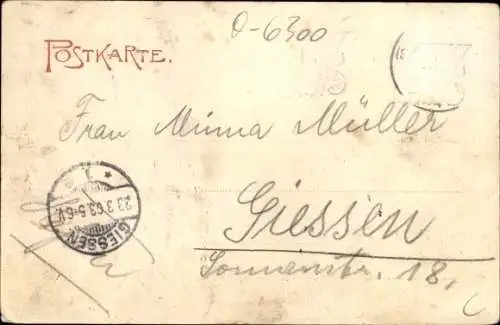 O-6300
POSTKARTE.
Frau Minna Müller
GIESSEN
23.3.03.5-6V.
Giessen
Sonnenstr. 18,